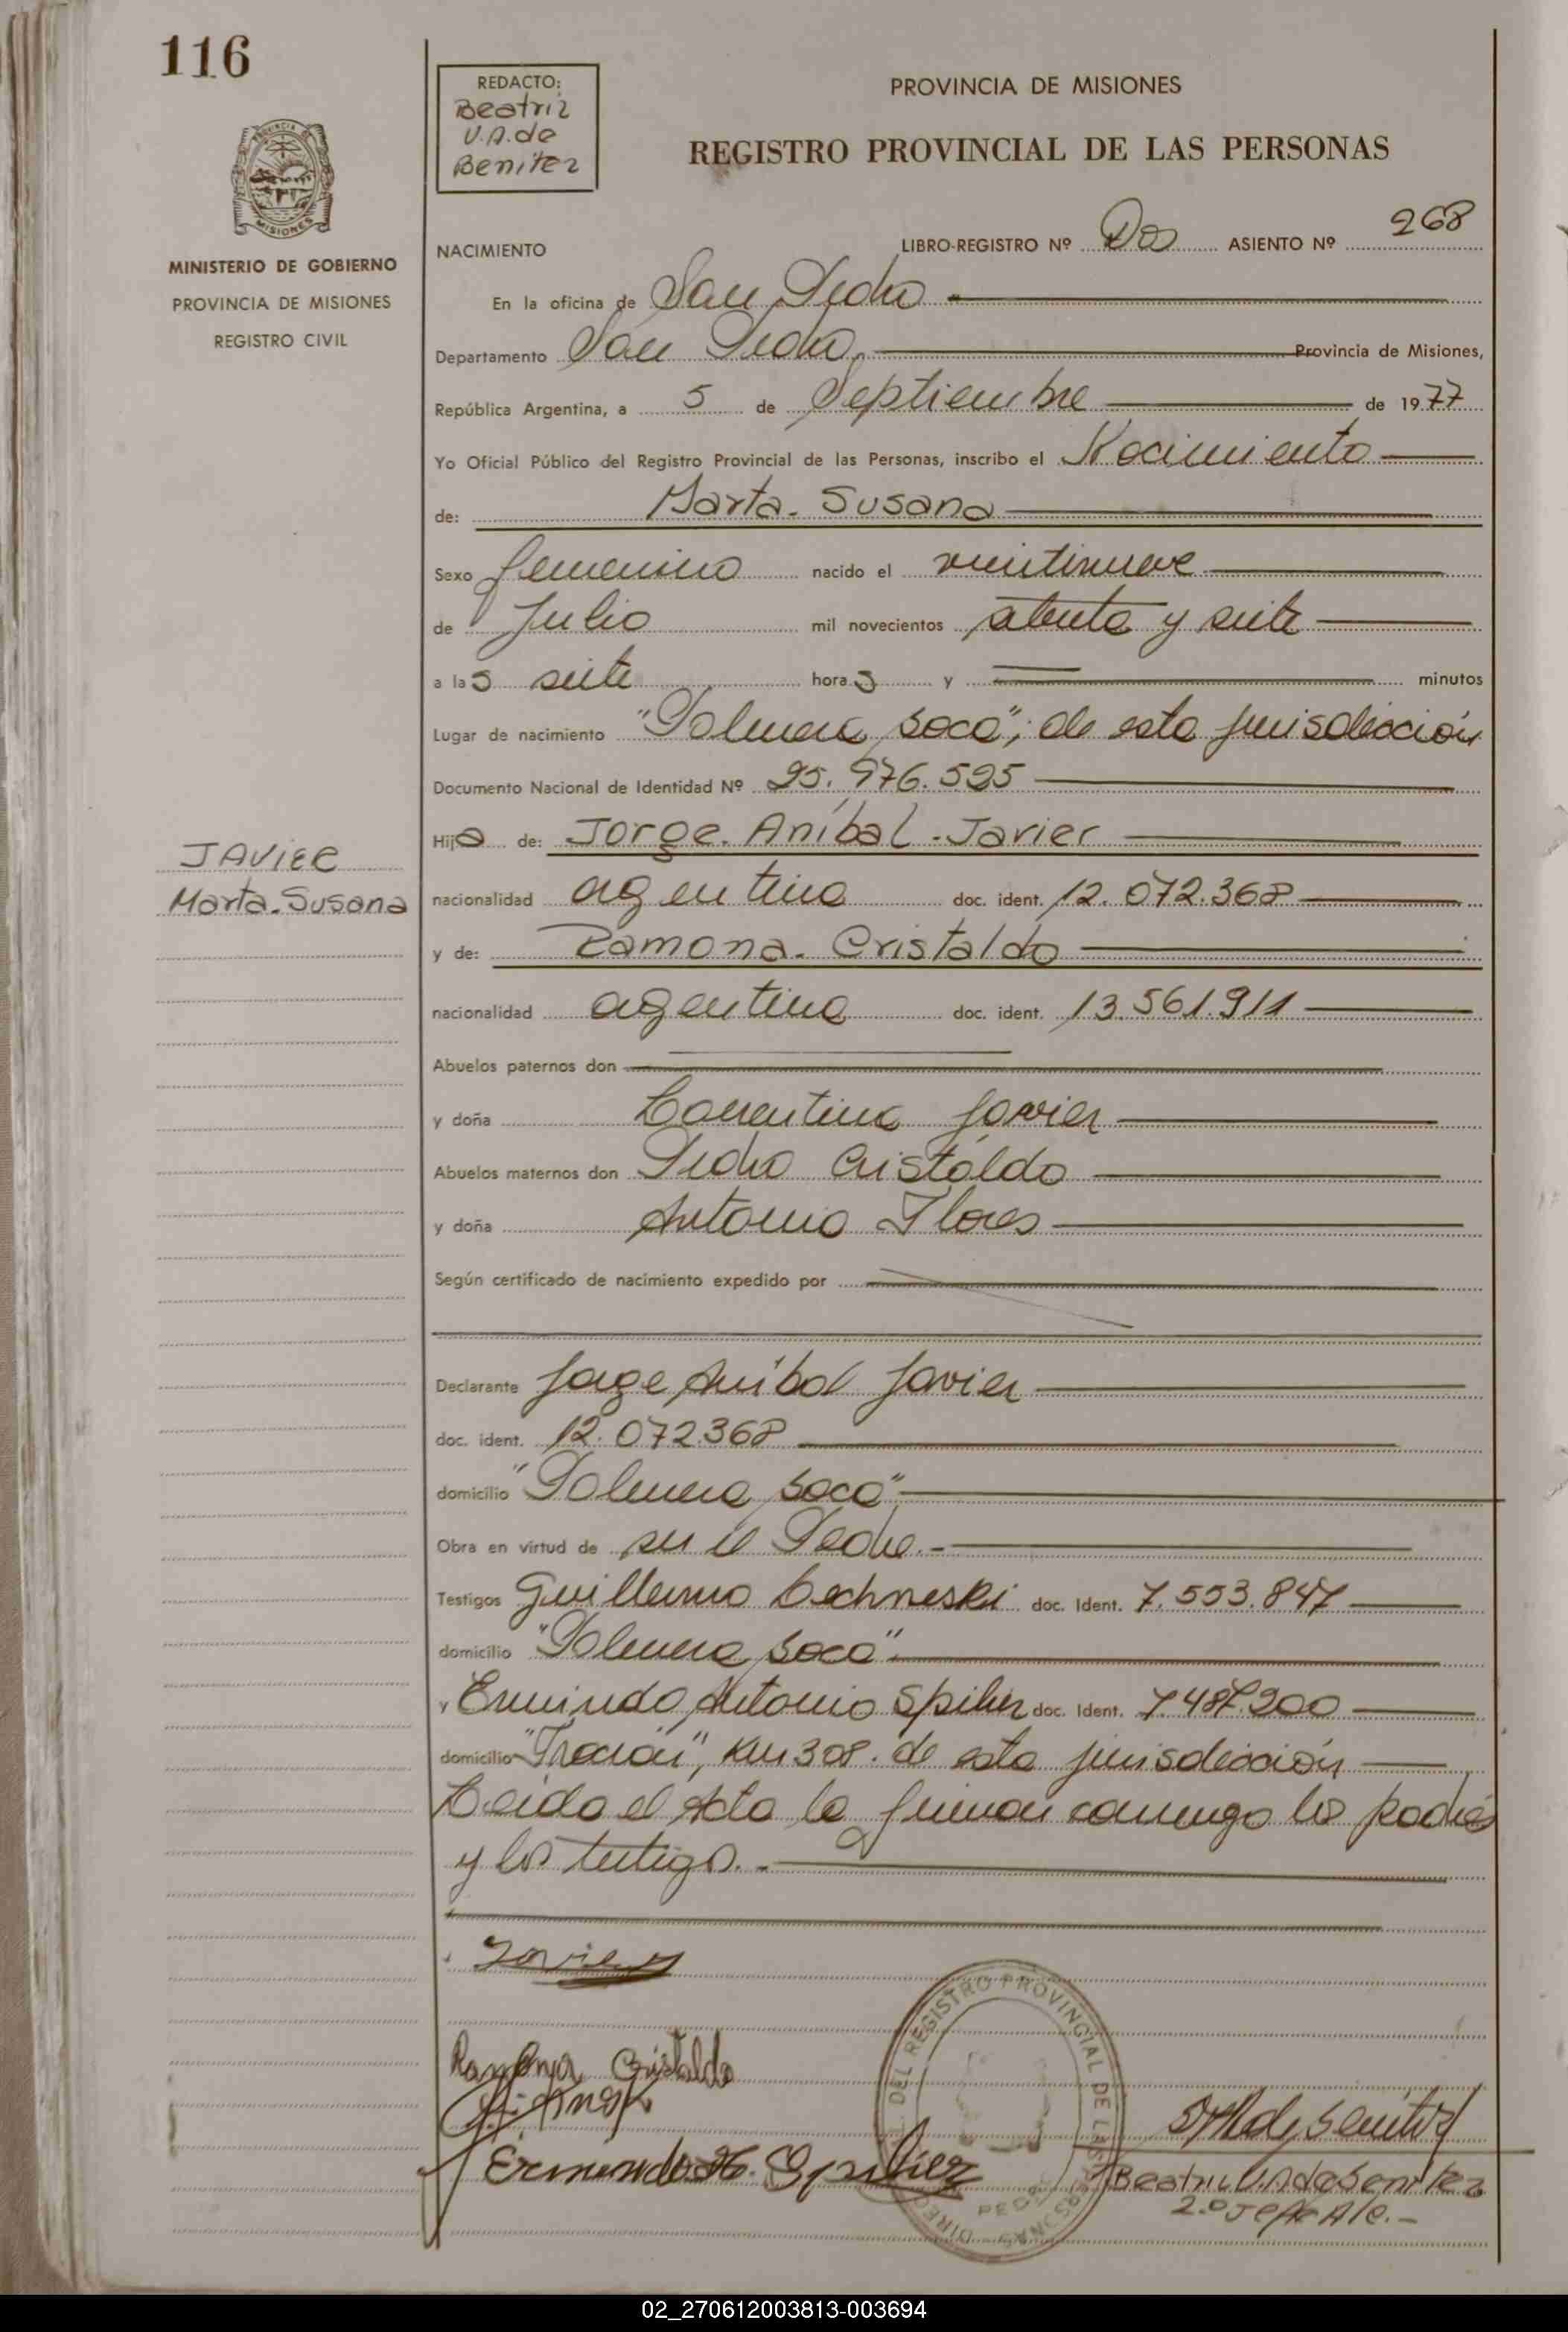 116
REDACTO:
Beatriz
V.A. de
Benitez
PROVINCIA DE MISIONES
REGISTRO PROVINCIAL DE LAS PERSONAS
MISIONES
MINISTERIO DE GOBIERNO
PROVINCIA DE MISIONES
REGISTRO CIVIL
NACIMIENTO LIBRO-REGISTRO Nº Dos ASIENTO Nº 268
En la oficina de San Pedro
Departamento San Pedro, Provincia de Misiones,
República Argentina, a 5 de Septiembre de 1977
Yo Oficial Público del Registro Provincial de las Personas, inscribo el Nacimiento
de: Marta. Susana
Sexo femenino nacido el veintinueve
de Julio mil novecientos setenta y siete
a las siete horas y minutos
Lugar de nacimiento "Palmera Boca", de esta jurisdicción
Documento Nacional de Identidad Nº 25.976.525
Hija de: Jorge. Aníbal. Javier
JAVIER
Marta. Susana
nacionalidad argentina doc. ident. 12.072.368
y de: Ramona. Cristaldo
nacionalidad argentina doc. ident. 13.561.911
Abuelos paternos don
y doña Correntina Javier
Abuelos maternos don Pedro Cristaldo
y doña Antonia Flores
Según certificado de nacimiento expedido por
Declarante Jorge Aníbal Javier
doc. ident. 12.072.368
domicilio "Palmera Boca"
Obra en virtud de ser el Padre.-
Testigos Guillermo Lechneski doc. Ident. 7.553.847
domicilio "Palmera Boca".
y Ermindo Antonio Spiler doc. Ident. 7.487.200
domicilio "Tracían", Km 308. de esta jurisdicción
Leída el Acta la firman conmigo los padres
y los testigos.-
Javier
Ramona Cristaldo
Beatriz V.A de Benitez
2.º Jefe A/c.-
DEL REGISTRO PROVINCIAL DE LAS PERSONAS
02_270612003813-003694